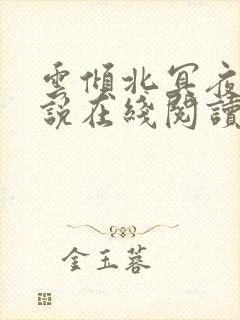 雲傾北冥夜
説在綫閱讀
金玉蓉